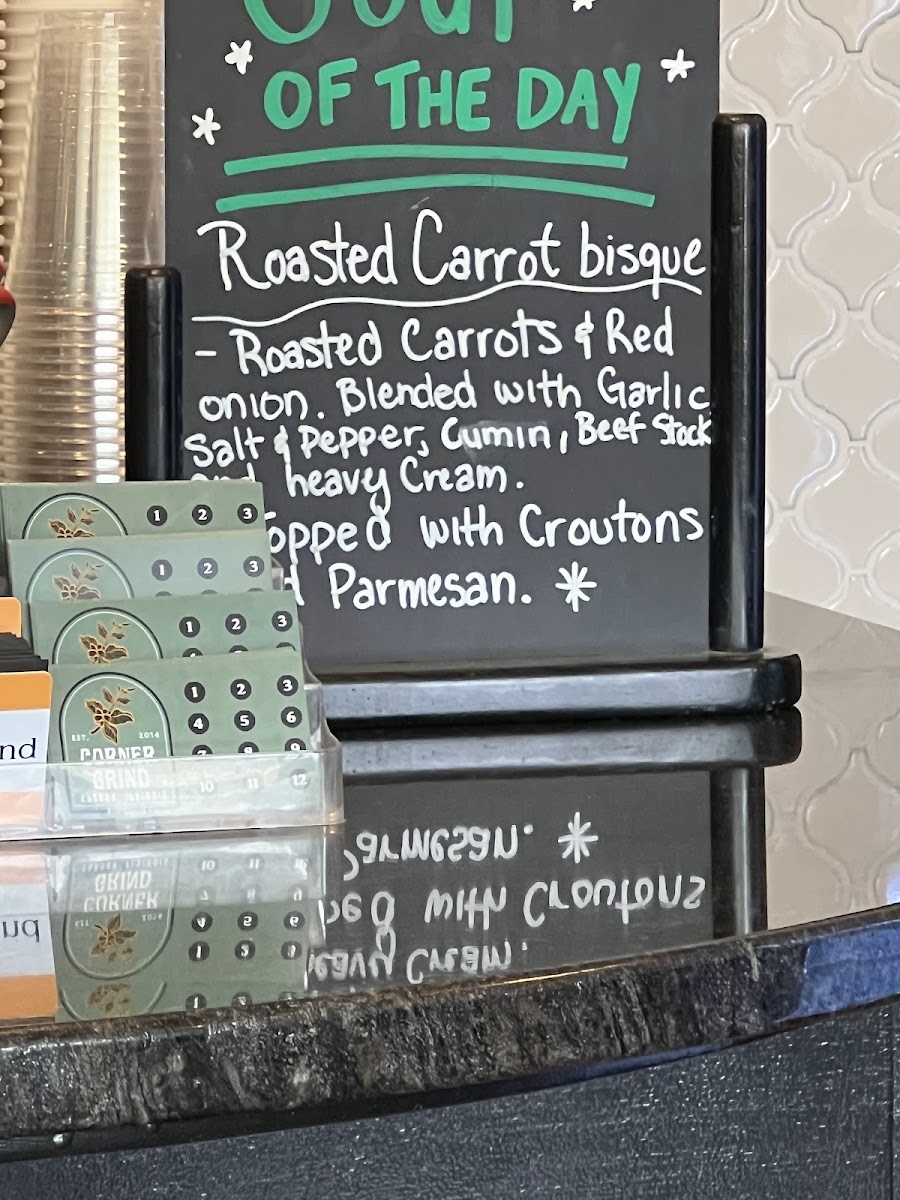 Soup
OF THE DAY
Roasted Carrot bisque
- Roasted Carrots & Red
onion. Blended with Garlic
Salt & Pepper, Cumin, Beef Stock
and heavy Cream.
opped with Croutons
d Parmesan. *
1 2 3
1 2 3
1 2 3
1 2 3
4 5 6
7 8 9
10 11 12
EST. 2014
CORNER
GRIND
nd